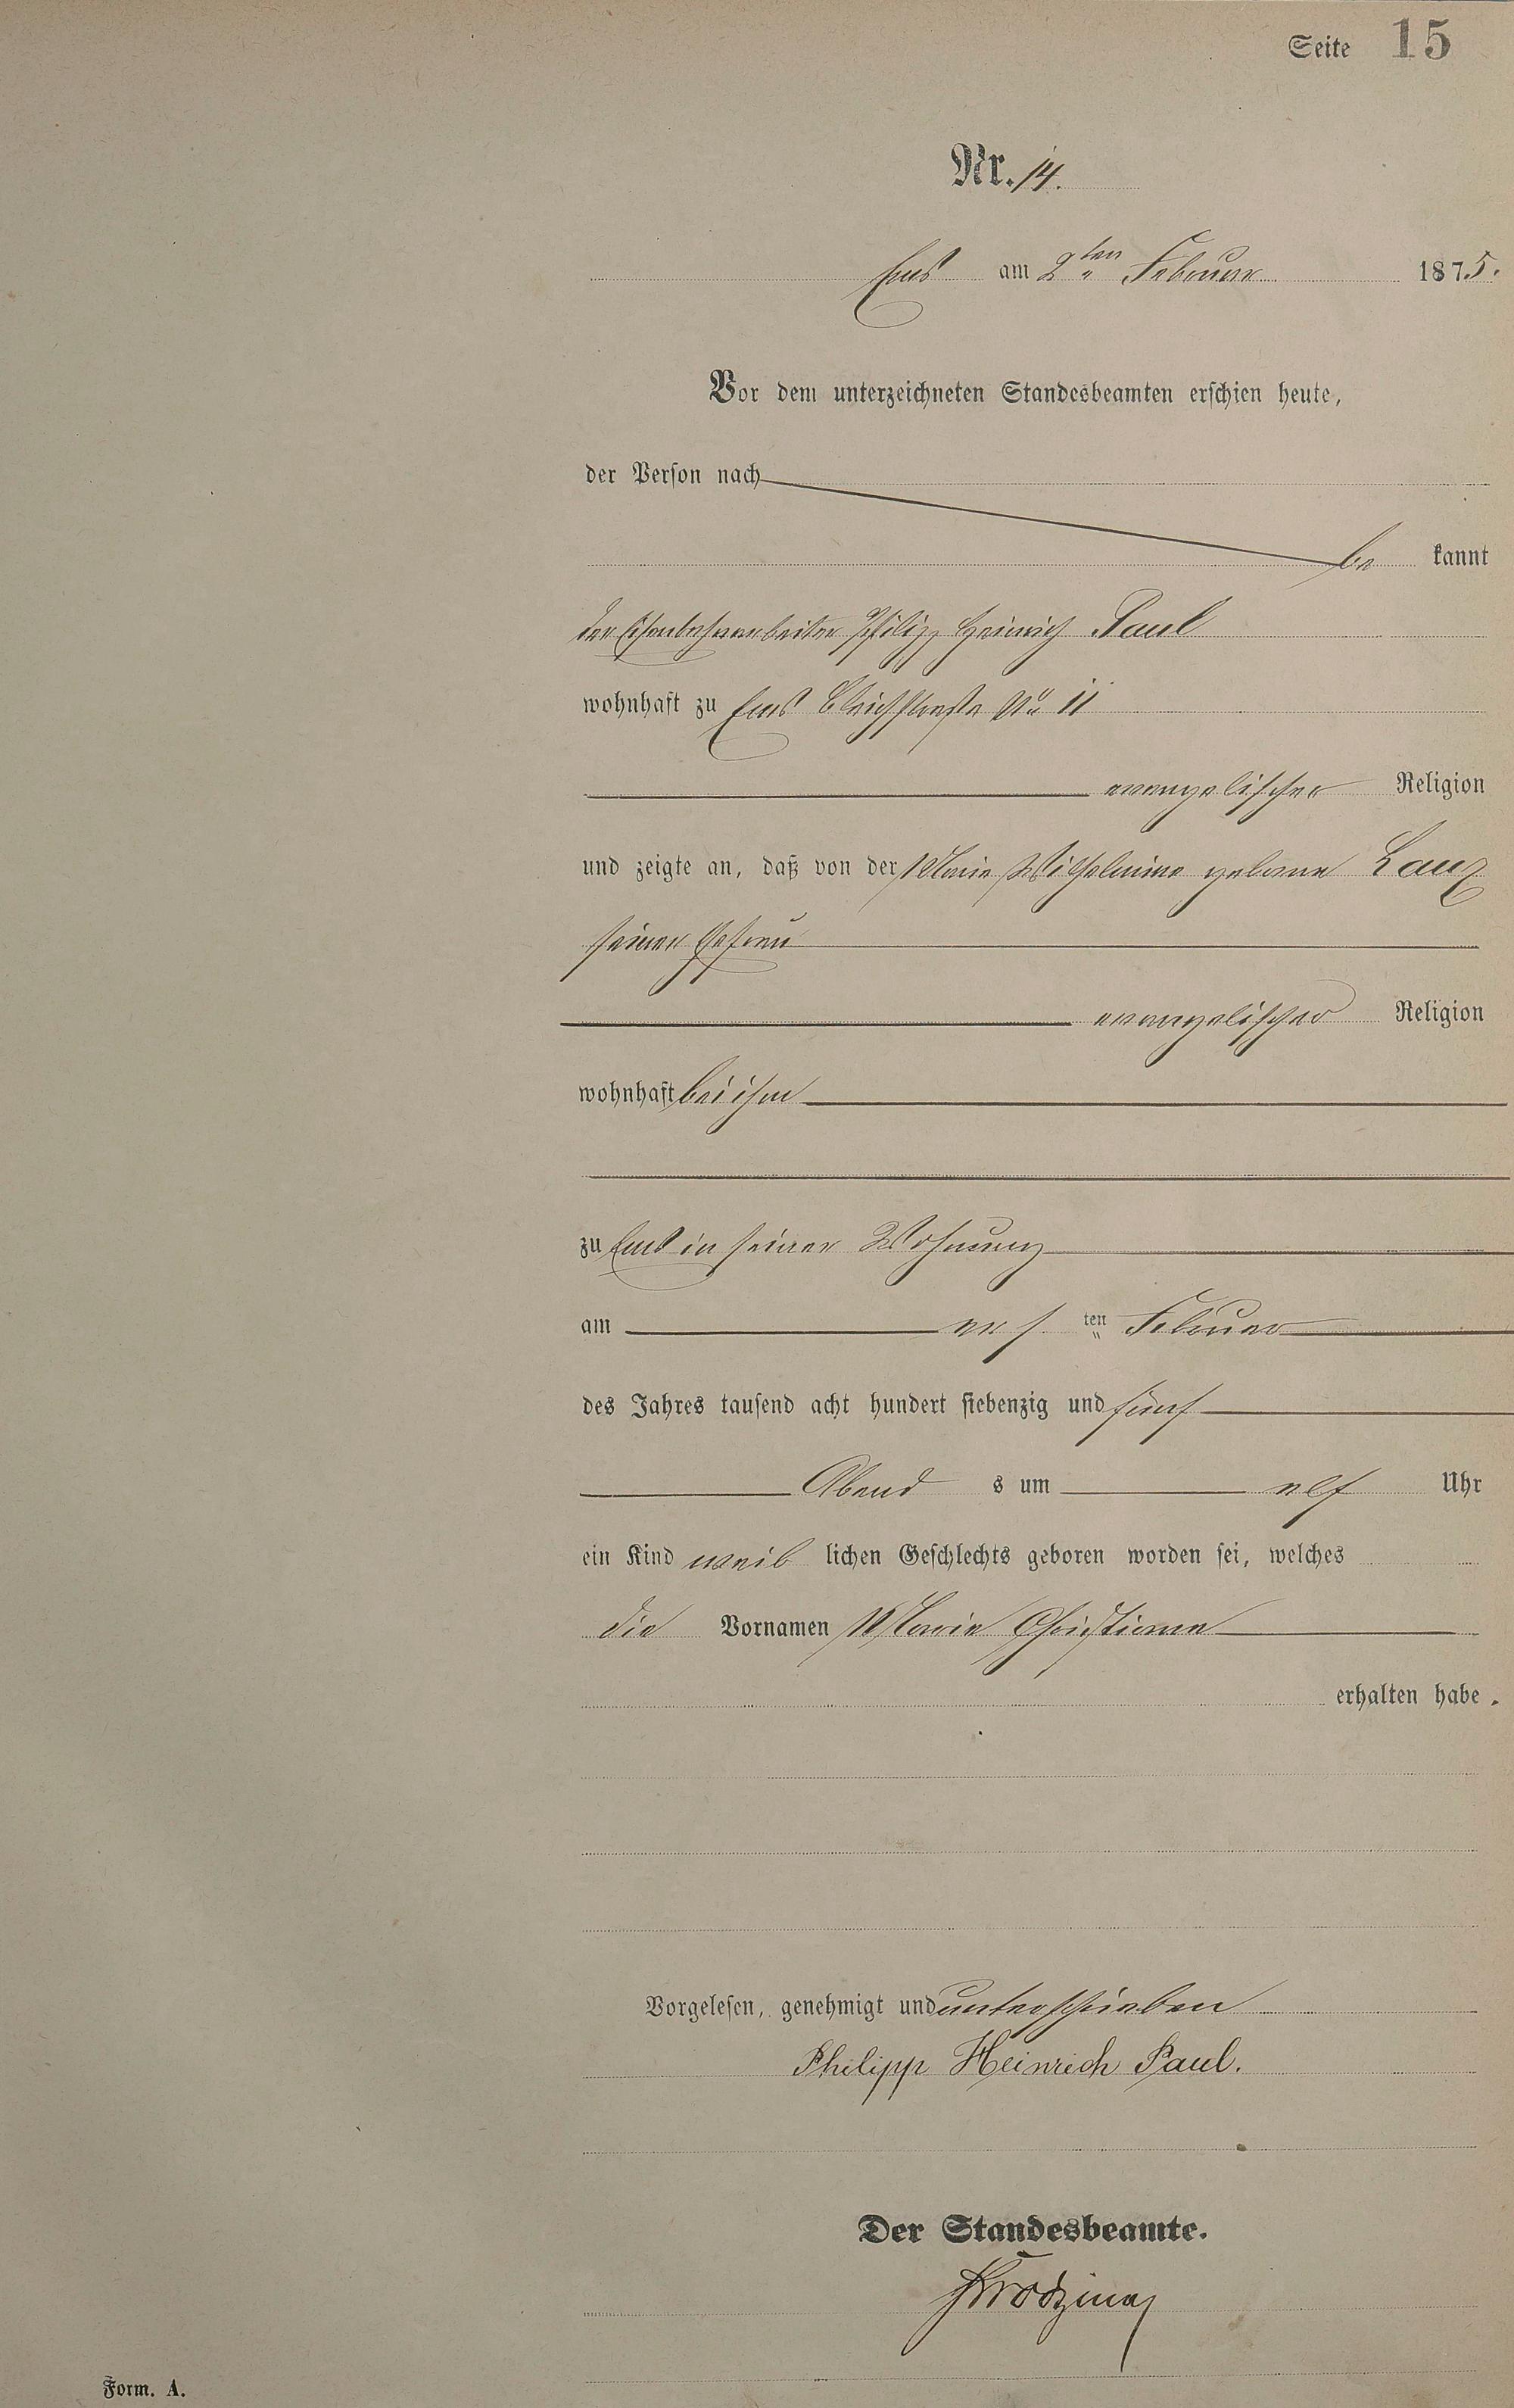 Seite 15
Nr. 14.
Ems am 2ten Februar 1875.
Vor dem unterzeichneten Standesbeamten erschien heute,
der Person nach
be kannt
der Eisenbahnarbeiter Philipp Heinrich Paul
wohnhaft zu Ems Bleichstraße No 11
evangelischer Religion
und zeigte an, daß von der Marie Wilhelmine geborne Lanz
seiner Ehefrau
evangelischer Religion
wohnhaft bei ihm
zu Ems in seiner Wohnung
am ersten Februar
des Jahres tausend acht hundert siebenzig und fünf
Abend s um elf Uhr
ein Kind weib lichen Geschlechts geboren worden sei, welches
die Vornamen Marie Christiane
erhalten habe.
Vorgelesen, genehmigt und unterschrieben
Philipp Heinrich Paul.
Der Standesbeamte.
Form. A.